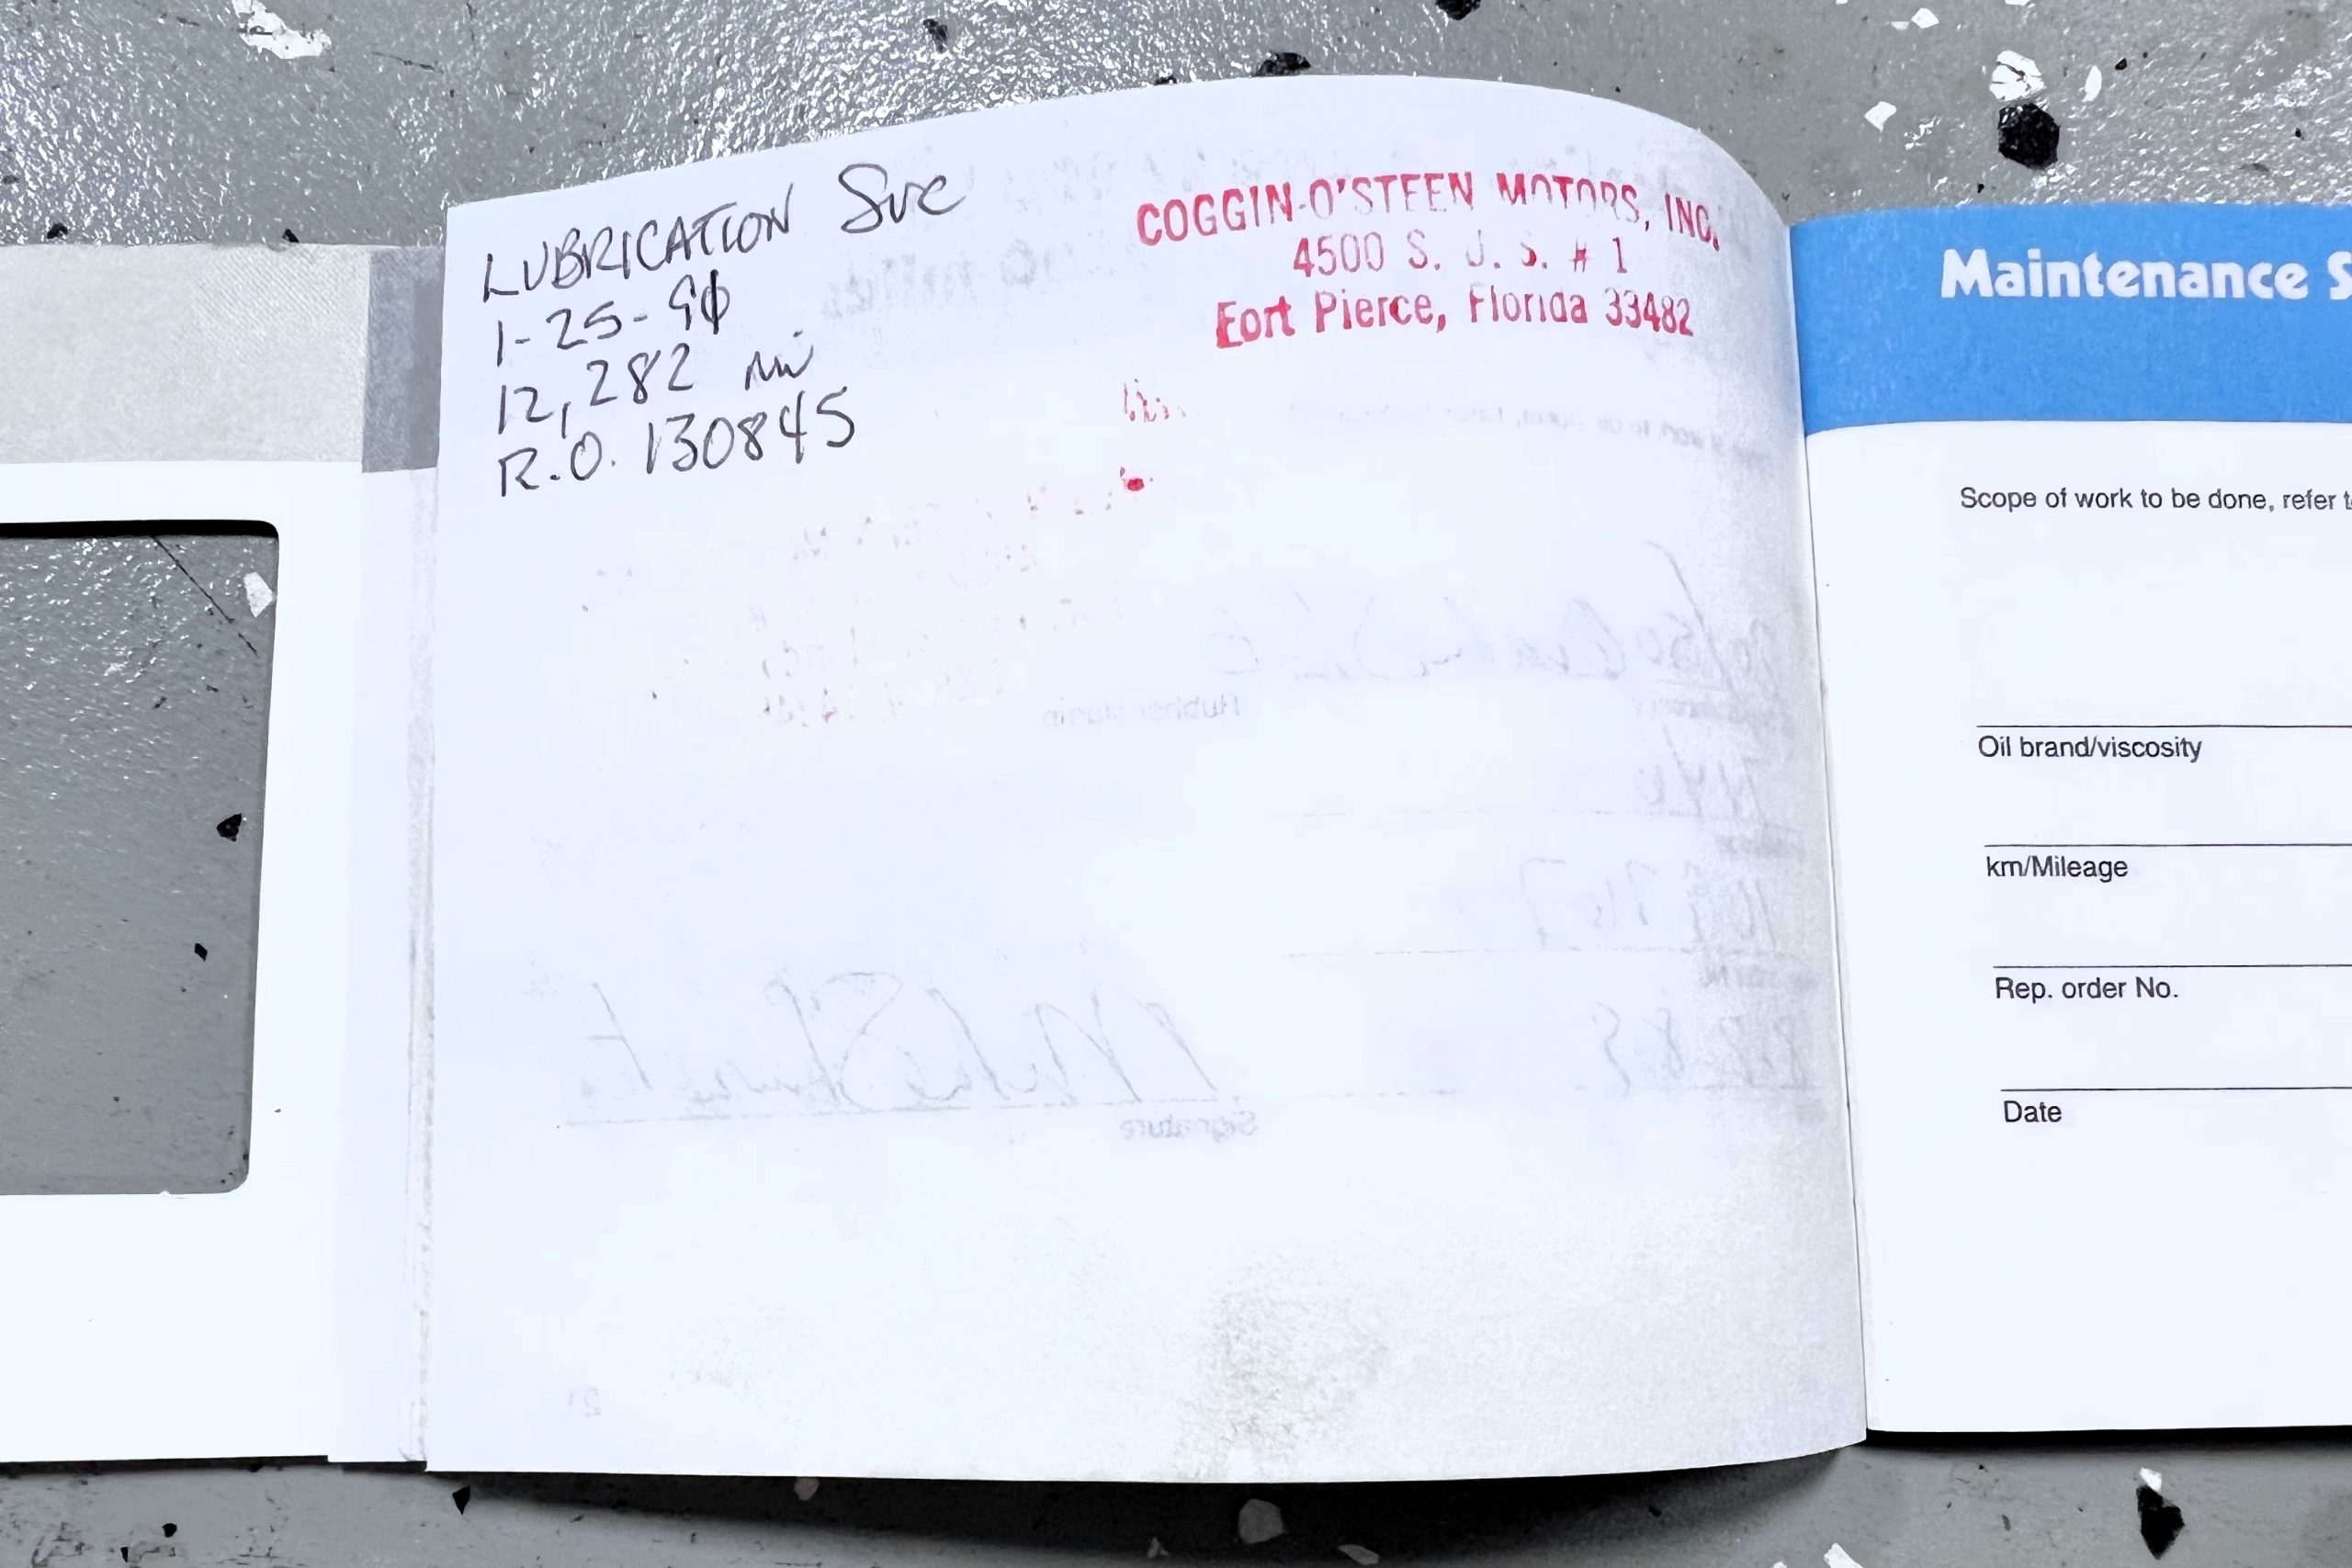 LUBRICATION Svc
1-25-90
12,282 mi
R.O. 130845
COGGIN-O'STEEN MOTORS, INC.
4500 S. U. S. # 1
Fort Pierce, Florida 33482
Maintenance S
Scope of work to be done, refer t
Oil brand/viscosity
km/Mileage
Rep. order No.
Date
Rubber stamp
Signature
21